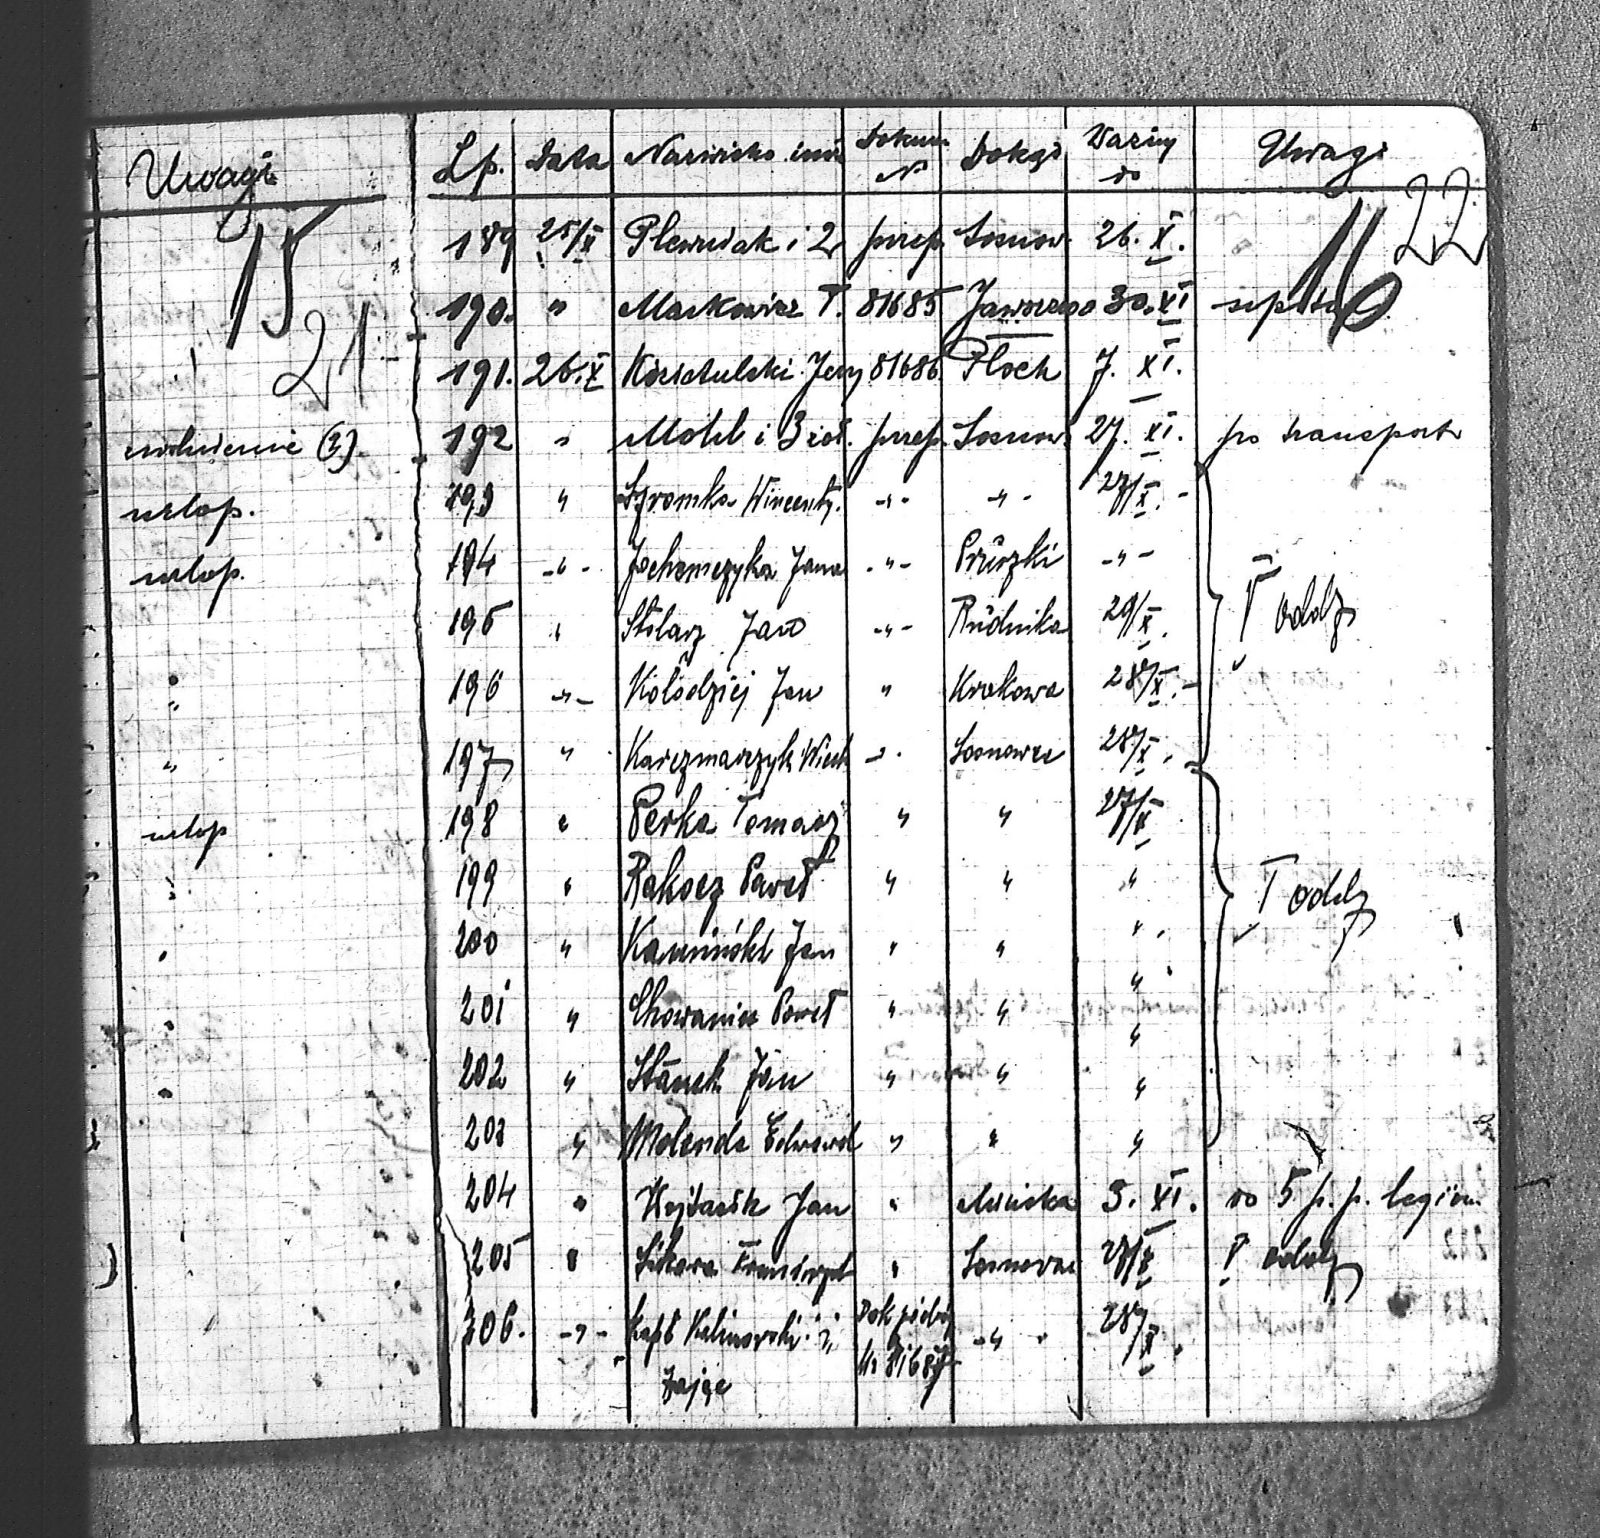 Uwagi
15
21
zwolnienie (3).
urlop.
urlop.
"
"
urlop
Lp. Data Nazwisko imię Dokum № Dokąd Ważny do Uwagi
16 22
189 25/X Plewniak i 2 przep. Sosnow. 26. X.
190. " Markowicz T. 81685 Jaworzno 30. XI
191. 26.X Jerzy 81686 Płock 7. XI.
192 " Mohl i 3 żoł. przep. Sosnow. 27. XI. po transport
193 " Szromka Wincenty. -"- -"- 27/X. -
194 -"- Jachemczyka Jana -"- Pruszki -"-
195 " Stolarz Jan -"- Rudnika 29/X. I oddz
196 -"- Kołodziej Jan " Krakowa 28/X. -
197 " Karczmarczyk Wick -"- Sosnowca 28/X.
198 " Perka Tomasz " " 27/X.
199 " Rakocz Paweł " " " I oddz
200 " Kamiński Jan " " "
201 " Chowaniec Paweł " " "
202 " Stanek Jan " " "
203 " Molenda Edward " " "
204 " Wojtasik Jan " Mińska 5. XI. do 5 p. p. legion.
205 " Sikora " Sosnowca 28/X I oddz
206. -"- kapt Kalinowski i Zając Dok podróż Nr 81687 -"- 28/X.